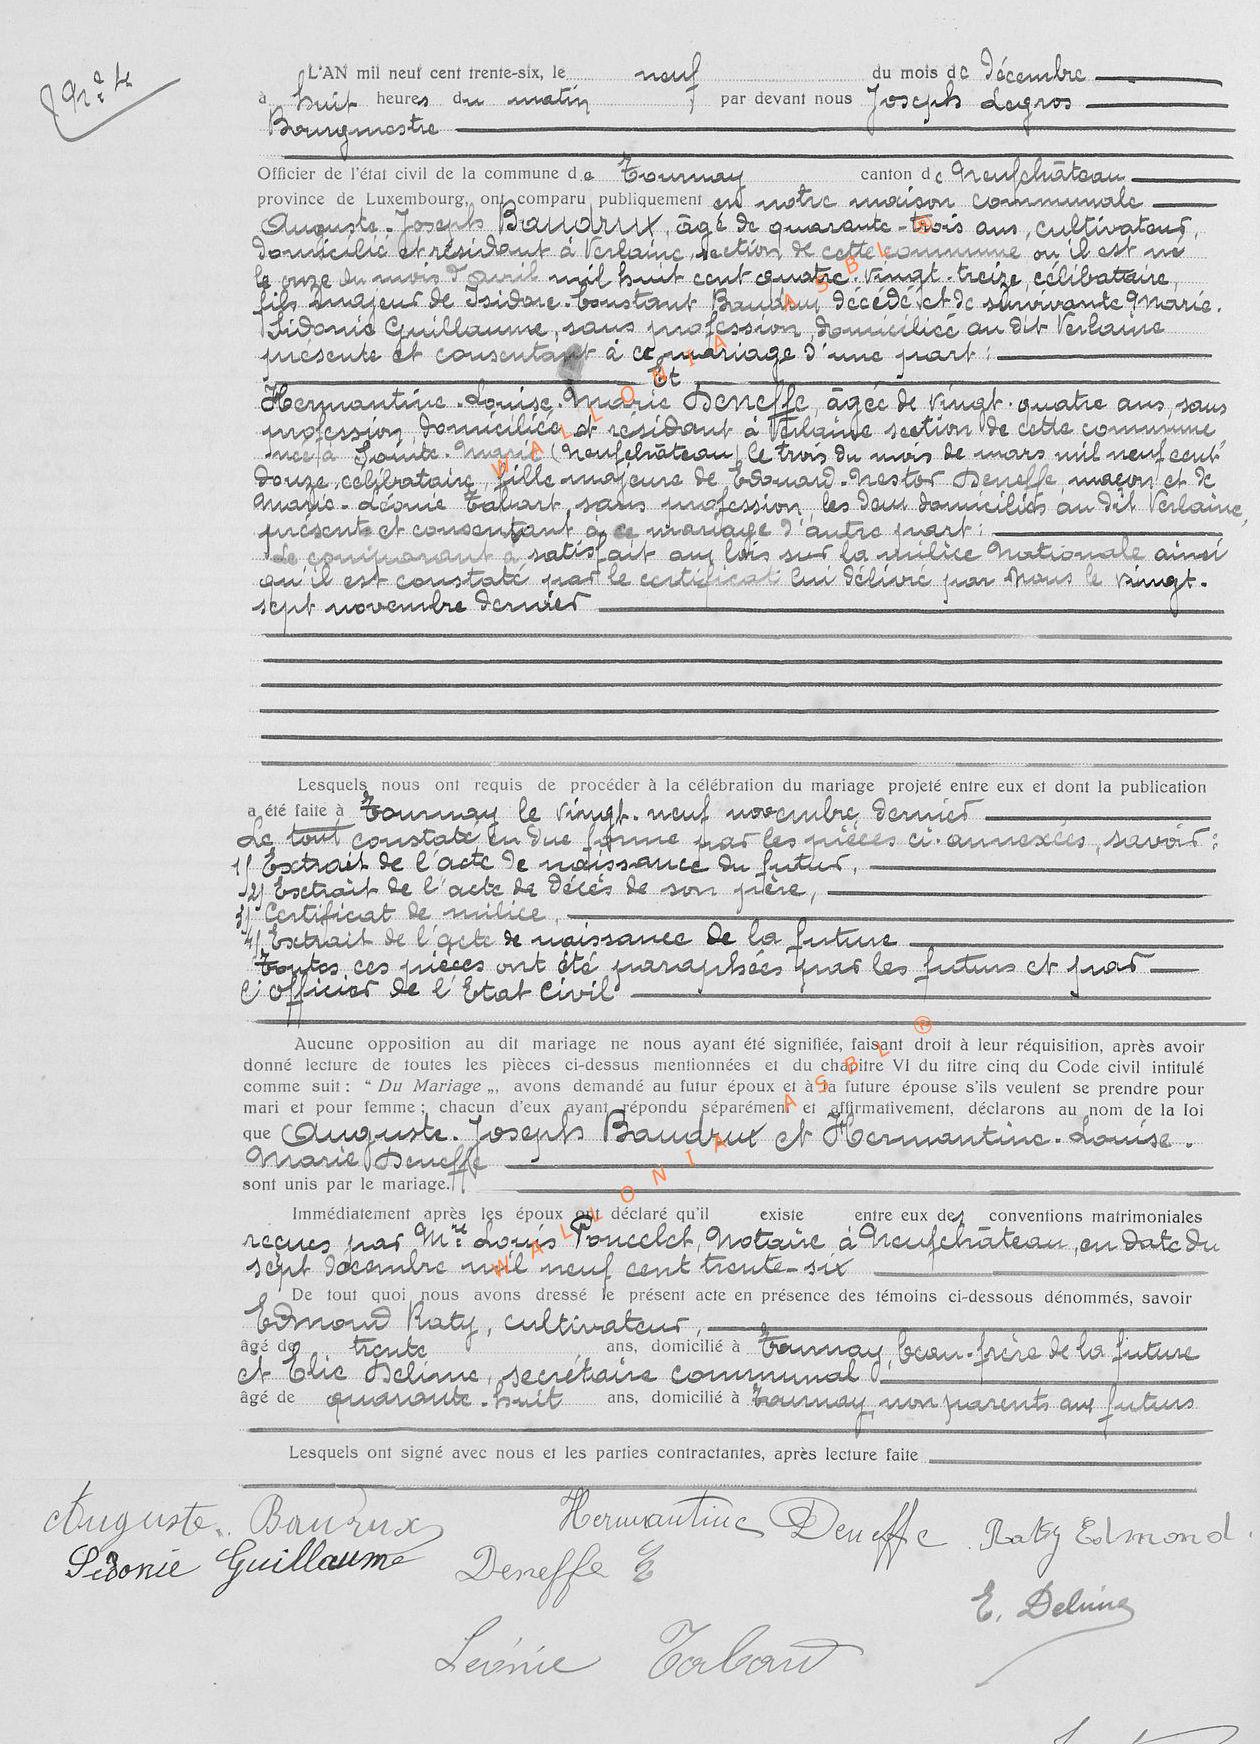 N° 4
L'AN mil neuf cent trente-six, le neuf du mois de Décembre
à huit heures du matin, par devant nous Joseph Legros
Bourgmestre
Officier de l'état civil de la commune de Tournay canton de Neufchâteau
province de Luxembourg, ont comparu publiquement en notre maison communale
Auguste-Joseph Baudrux, âgé de quarante-trois ans, cultivateur,
domicilié et résidant à Verlaine, section de cette commune où il est né
le onze du mois d'avril mil huit cent quatre-vingt-treize, célibataire,
fils majeur de Isidore-Constant Baudrux décédé, et de survivante Marie-
Sidonie Guillaume, sans profession, domiciliée au dit Verlaine
présente et consentant à ce mariage d'une part:
Et
Hermantine-Louise-Marie Deneffe, âgée de vingt-quatre ans, sans
profession, domiciliée et résidant à Verlaine section de cette commune
née à Sainte-Marie (Neufchâteau) le trois du mois de mars mil neuf cent
douze, célibataire, fille majeure de Edouard-Nestor Deneffe, maçon et de
Marie-Léonie Tabart, sans profession, les deux domiciliés au dit Verlaine,
présents et consentant à ce mariage d'autre part:
Le comparant a satisfait aux lois sur la milice Nationale ainsi
qu'il est constaté par le certificat lui délivré par Nous le vingt-
sept novembre dernier
Lesquels nous ont requis de procéder à la célébration du mariage projeté entre eux et dont la publication
a été faite à Tournay le vingt-neuf novembre dernier
Le tout constaté en due forme par les pièces ci-annexées, savoir:
1/ Extrait de l'acte de naissance du futur,
2/ Extrait de l'acte de décès de son père,
3/ Certificat de milice,
4/ Extrait de l'acte de naissance de la future
Toutes ces pièces ont été paraphées par les futurs et par
l'officier de l'Etat Civil
Aucune opposition au dit mariage ne nous ayant été signifiée, faisant droit à leur réquisition, après avoir
donné lecture de toutes les pièces ci-dessus mentionnées et du chapitre VI du titre cinq du Code civil intitulé
comme suit : “ Du Mariage „, avons demandé au futur époux et à la future épouse s'ils veulent se prendre pour
mari et pour femme ; chacun d'eux ayant répondu séparément et affirmativement, déclarons au nom de la loi
que Auguste-Joseph Baudrux et Hermantine-Louise-
Marie Deneffe
sont unis par le mariage.
Immédiatement après les époux ont déclaré qu'il existe entre eux des conventions matrimoniales
reçues par Mre Louis Poncelet, Notaire à Neufchâteau, en date du
sept décembre mil neuf cent trente-six
De tout quoi nous avons dressé le présent acte en présence des témoins ci-dessous dénommés, savoir
Edmond Raty, cultivateur,
âgé de trente ans, domicilié à Tournay, beau-frère de la future
et Elie Delime, secrétaire communal
âgé de quarante-huit ans, domicilié à Tournay, non parents aux futurs
Lesquels ont signé avec nous et les parties contractantes, après lecture faite
Auguste Baudrux Hermantine Deneffe Raty Edmond
Sidonie Guillaume Deneffe E
E. Delime
Léonie Tabart
WALLONIA ASBL ®
WALLONIA ASBL ®